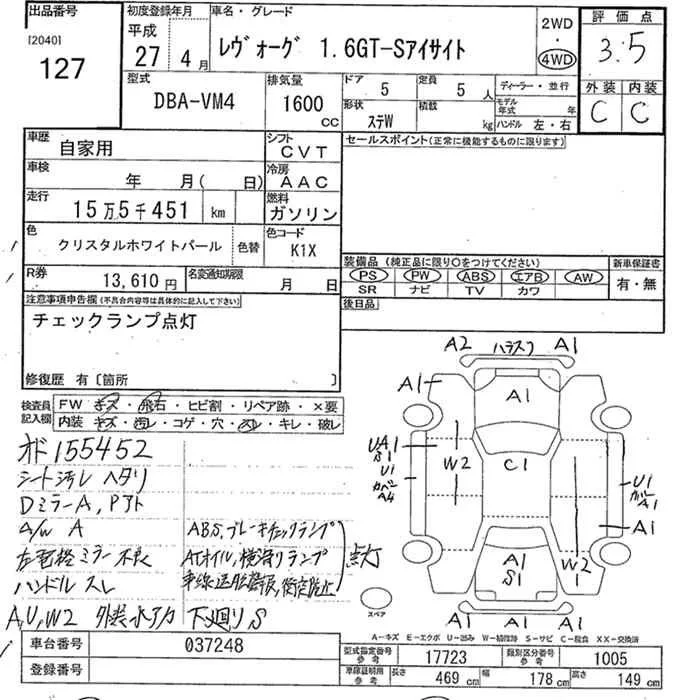 出品番号
[2040]
127
初度登録年月
平成
27年 4月
車名・グレード
レヴォーグ 1.6GT-Sアイサイト
2WD
・
4WD
評価点
3.5
外装 内装
C C
型式
DBA-VM4
排気量
1600
cc
ドア
5
定員
5人
形状
ステW
積載
kg
ディーラー・並行
モデル年式 年
ハンドル 左・右
車歴
自家用
シフト
CVT
車検
年 月( 日)
冷房
AAC
走行
15万5千451 km
燃料
ガソリン
色
クリスタルホワイトパール
色替
色コード
K1X
R券
13,610円
名変通知期限
月 日
セールスポイント(正常に機能するものに限ります)
装備品(純正品に限り○をつけてください)
PS PW ABS エアB AW
SR ナビ TV カワ
新車保証書
有・無
後日品
注意事項申告欄(不具合内容等は具体的に記入して下さい)
チェックランプ点灯
修復歴 有〔箇所 〕
検査員記入欄
FW キズ・飛石・ヒビ割・リペア跡・×要
内装 キズ・汚レ・コゲ・穴・スレ・キレ・破レ
オド155452
シート汚レ ヘタリ
DミラーA, Pアト
A/W A
左電格ミラー不良
ハンドルスレ
A,U,W2 外装水アカ 下廻りS
ABS,ブレーキチェックランプ
ATオイル,横滑りランプ
点灯
A2 ハラスフ A1
A1
A1
UA1
S1
U1
カバー
A4
W2
C1
U1
カバー
A1
A1
W2
1
A1
S1
A1 A1 A1
スペア
A-キズ E-エクボ U-凹み W-補修跡 S-サビ C-腐食 XX-交換済
車台番号
037248
登録番号
型式指定番号
参考
17723
類別区分番号
参考
1005
車庫証明用
参考
長さ 469cm 幅 178cm 高さ 149cm